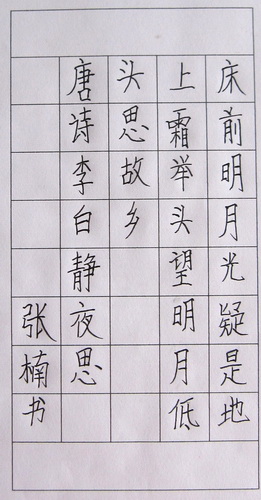 床前明月光疑是地
上霜举头望明月低
头思故乡
唐诗李白静夜思
张楠书